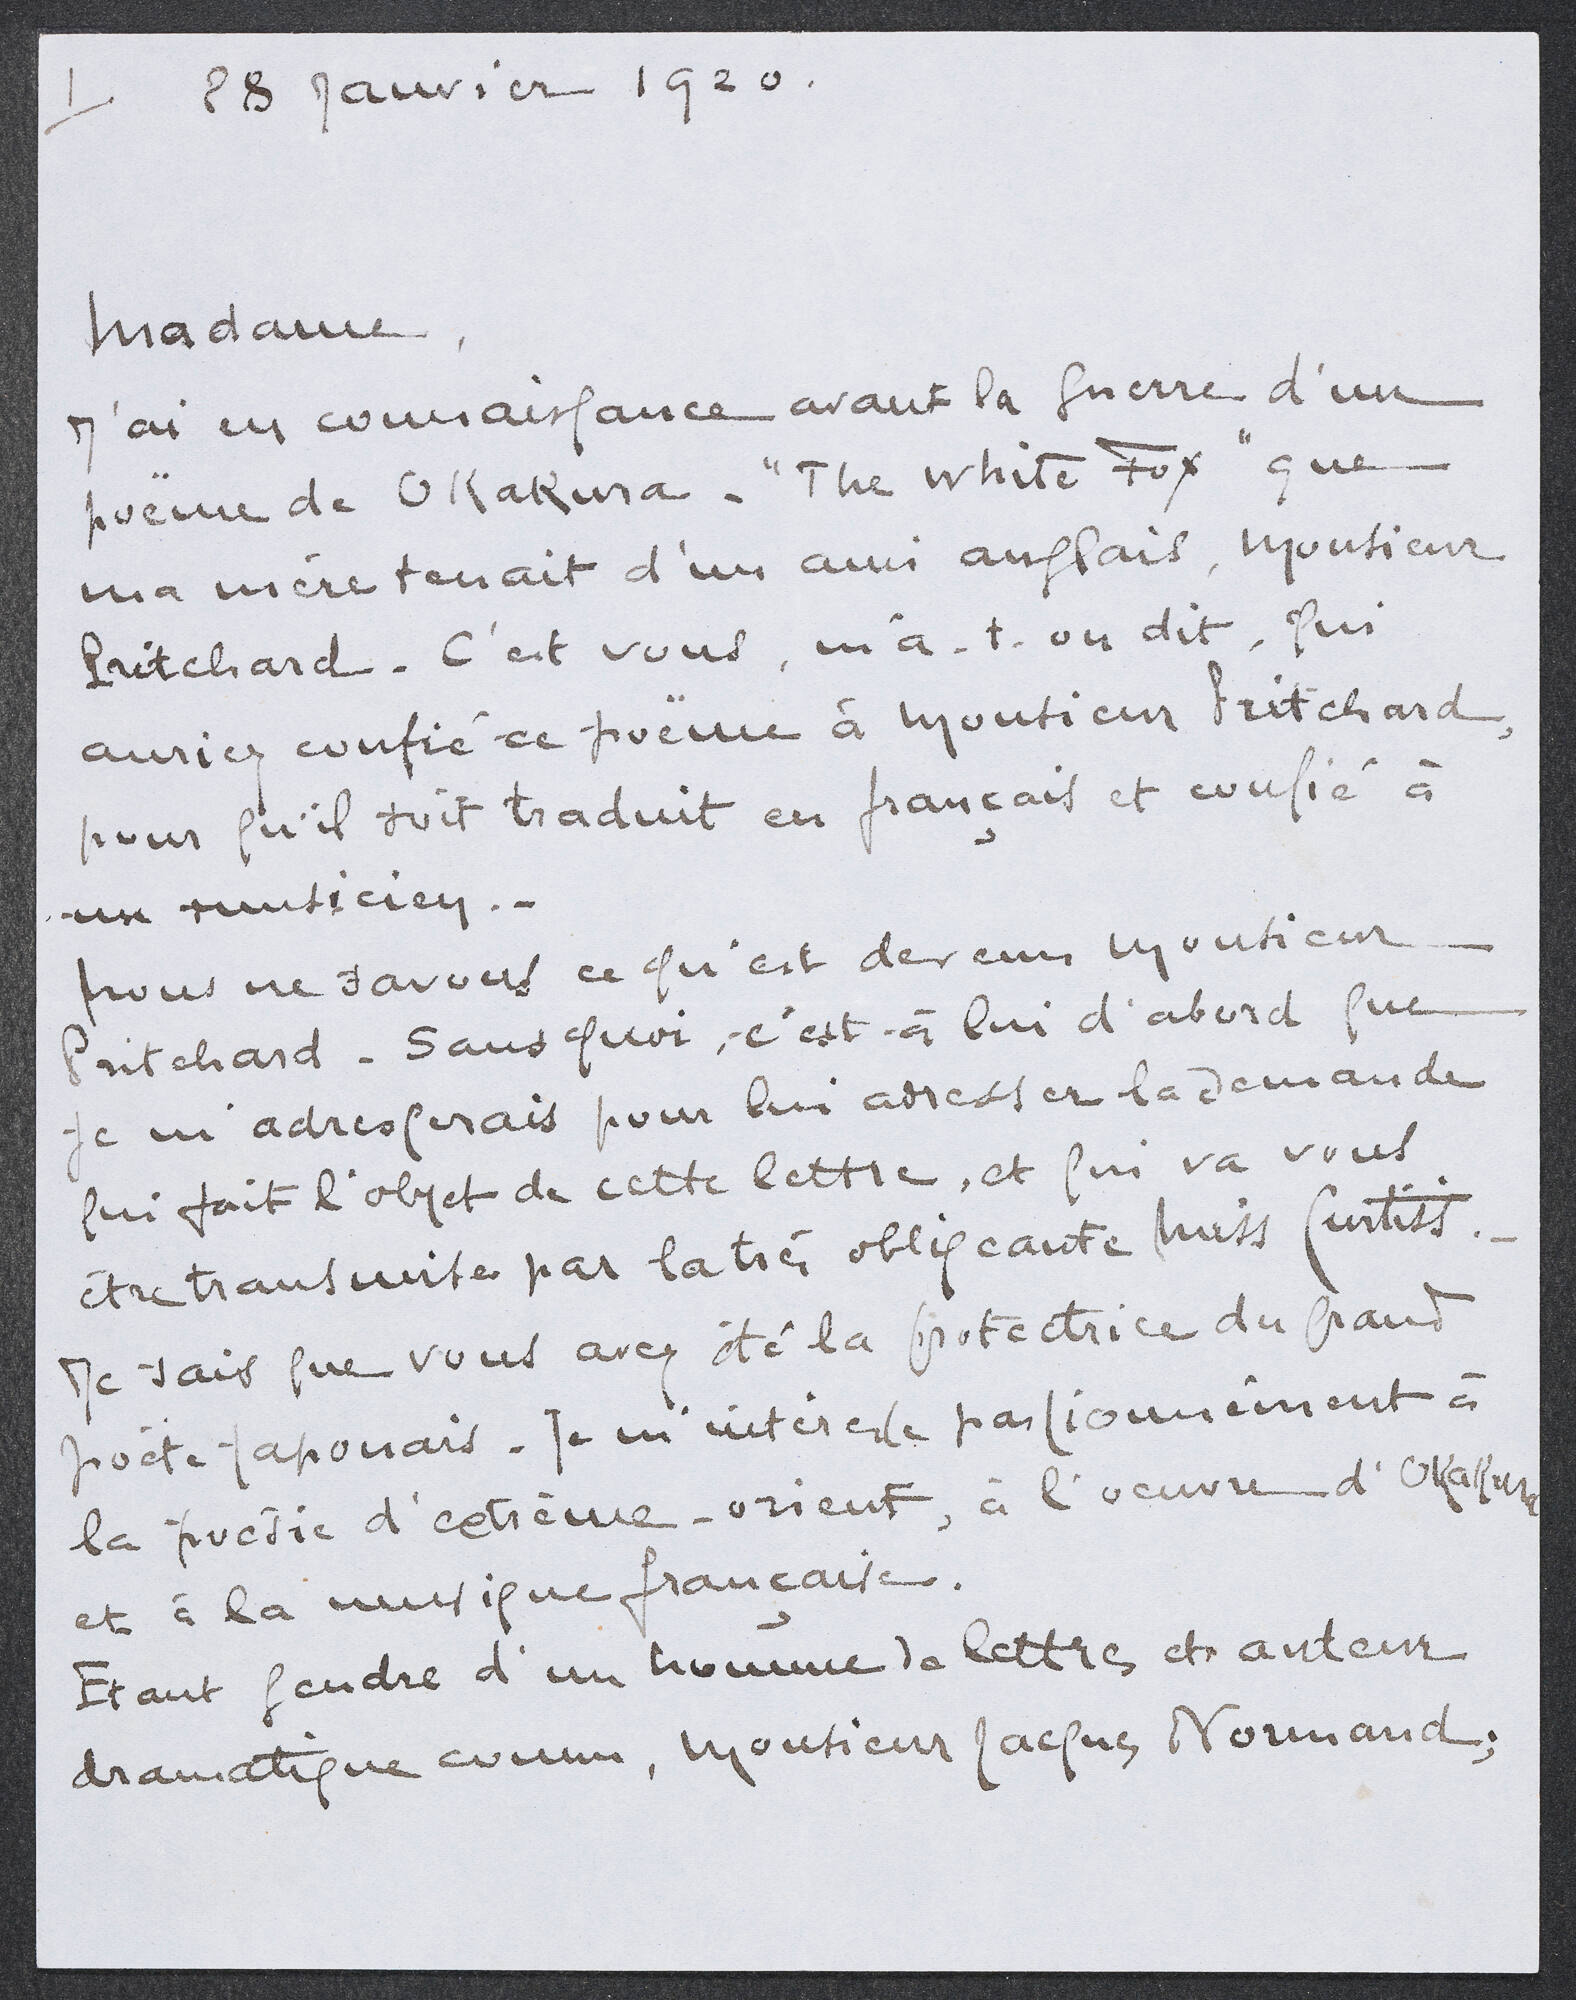 I 28 Janvier 1920.
Madame,
J'ai eu connaissance avant la guerre d'un
poëme de Okakura - "The White Fox" que
ma mère tenait d'un ami anglais, Monsieur
Pritchard - C'est vous, m'a-t-on dit, qui
auriez confié ce poëme à Monsieur Pritchard,
pour qu'il soit traduit en français et confié à
un musicien.-
Nous ne savons ce qu'est devenu Monsieur
Pritchard - Sans quoi, c'est à lui d'abord que
je m'adresserais pour lui adresser la demande
qui fait l'objet de cette lettre, et qui va vous
être transmise par la très obligeante Miss Curtiss.-
Je sais que vous avez été la protectrice du grand
poète japonais - Je m'intéresse passionnément à
la poésie d'extrême-orient, à l'oeuvre d'Okakura
et à la musique française.
Etant gendre d'un homme de lettres et auteur
dramatique connu, Monsieur Jacques Normand;